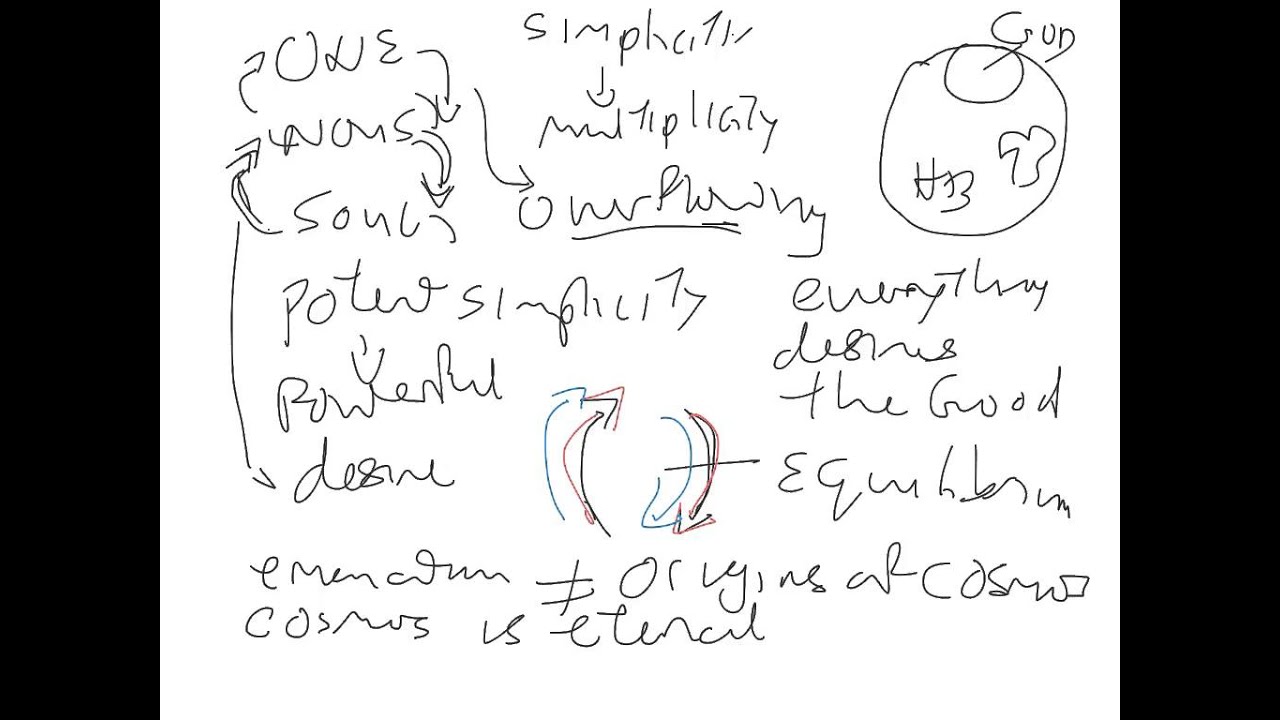 ONE
NOUS
SOUL
simplicity
multiplicity
overflowing
GOD
HB
potent simplicity
powerful
desire
everything
desires
the Good
Equilibrium
emanation ≠ Origins of cosmos
cosmos is eternal